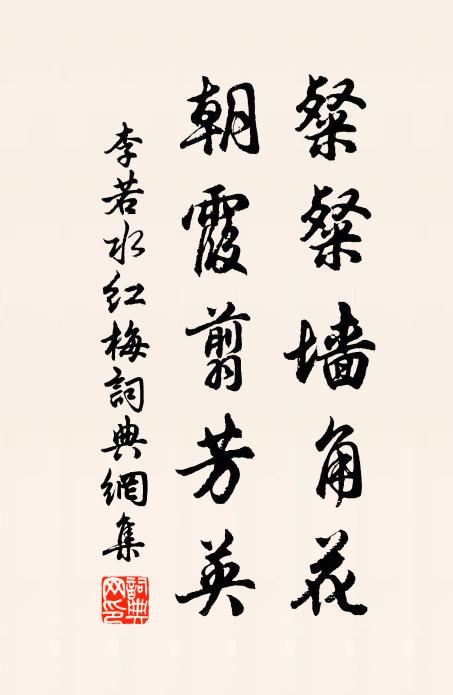 粲粲墙角花
朝霞翦芳英
李若水红梅詞典網集
詞典网印